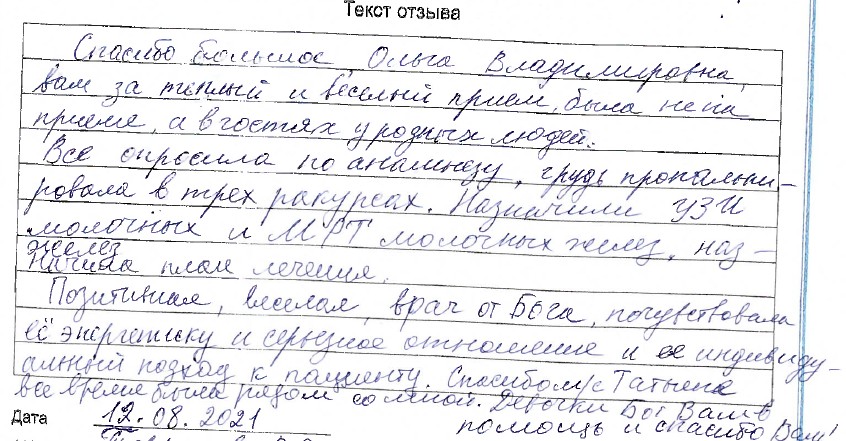 Текст отзыва
Спасибо большое, Ольга Владимировна,
вам за теплый и веселый прием, была не на
приеме, а в гостях у родных людей.
Все опросила по анамнезу, грудь пропальпи-
ровала в трех ракурсах. Назначили УЗИ
молочных и МРТ молочных желез, наз-
желез
начила план лечения.
Позитивная, веселая, врач от Бога, почувствовала
её энергетику и серьезное отношение и ее индивиду-
альный подход к пациенту. Спасибо м/с Татьяна
все время была рядом со мной. Девочки Бог Вам в
Дата 12.08.2021 помощь и спасибо Вам!